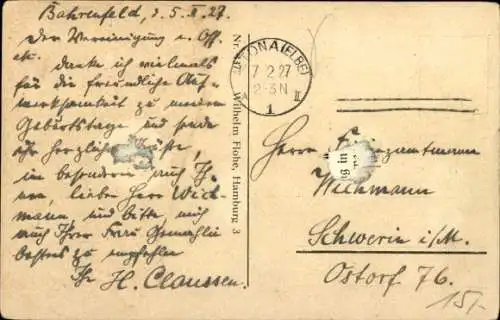 Bahrenfeld, d. 5. II. 27.
Der Vereinigung u. Off.
etc. danke ich vielmals
für die freundliche Auf-
merksamkeit zu meinem
Geburtstage und sende
ihr herzliche Grüße,
im besondern auch Ih-
nen, lieber Herr Wich-
mann, und bitte, mich
auch Ihrer Frau Gemahlin
bestens zu empfehlen
Ihr H. Claussen.
Nr.
Wilhelm Flohe, Hamburg 3
ALTONA (ELBE)
7 2 27
2-3 N
1
II
Herrn
Wichmann
Schwerin i/M.
Ostorf 76.
15/-